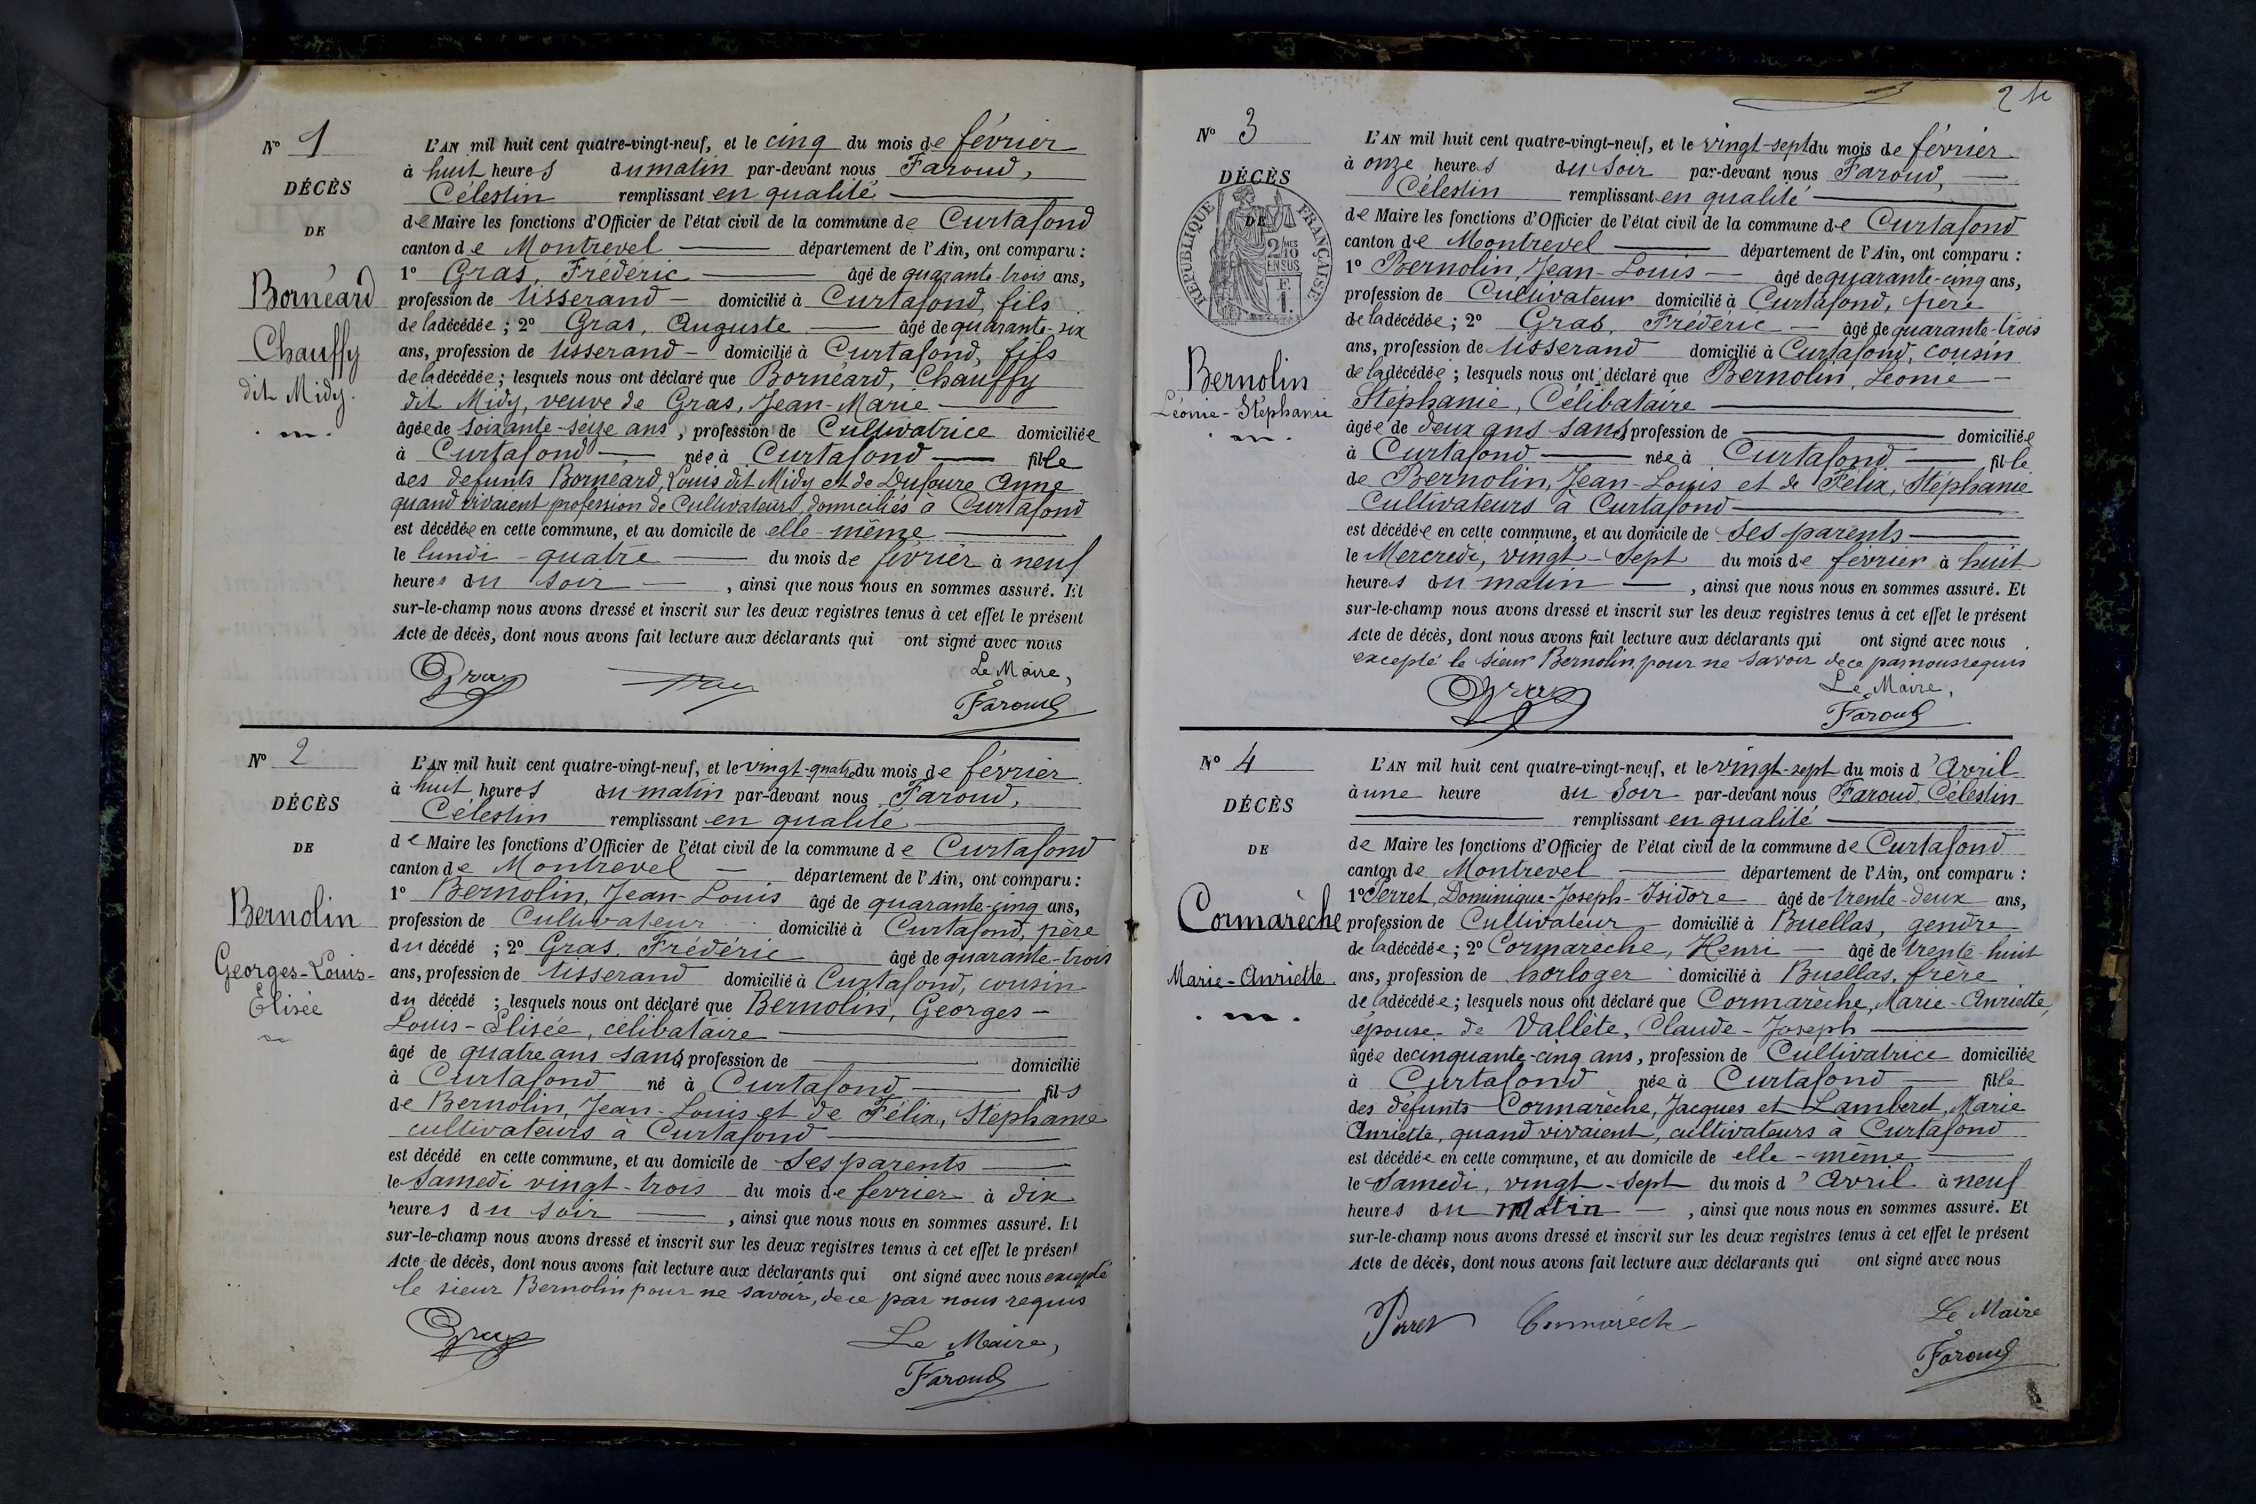 Nº 1
DÉCÈS
DE
Bornéard
Chauffy
dit Midy.
L'AN mil huit cent quatre-vingt-neuf, et le cinq du mois de février
à huit heures du matin par-devant nous Faroud,
Célestin remplissant en qualité
de Maire les fonctions d'Officier de l'état civil de la commune de Curtafond
canton de Montrevel département de l'Ain, ont comparu :
1º Gras, Frédéric âgé de quarante-trois ans,
profession de tisserand domicilié à Curtafond, fils
de la décédée ; 2º Gras, Auguste âgé de quarante-six
ans, profession de tisserand domicilié à Curtafond, fils
de la décédée ; lesquels nous ont déclaré que Bornéard, Chauffy
dit Midy, veuve de Gras, Jean-Marie
âgée de soixante-seize ans, profession de Cultivatrice domiciliée
à Curtafond née à Curtafond fille
des défunts Bornéard, Louis dit Midy et de Dufoure Anne
quand vivaient profession de Cultivateurs, domiciliés à Curtafond
est décédée en cette commune, et au domicile de elle-même
le lundi quatre du mois de février à neuf
heures du soir, ainsi que nous nous en sommes assuré. Et
sur-le-champ nous avons dressé et inscrit sur les deux registres tenus à cet effet le présent
Acte de décès, dont nous avons fait lecture aux déclarants qui ont signé avec nous
Le Maire,
Gras Gras Faroud
Nº 2
DÉCÈS
DE
Bernolin
Georges-Louis-
Elisée
L'AN mil huit cent quatre-vingt-neuf, et le vingt-quatre du mois de février
à huit heures du matin par-devant nous Faroud,
Célestin remplissant en qualité
de Maire les fonctions d'Officier de l'état civil de la commune de Curtafond
canton de Montrevel département de l'Ain, ont comparu :
1º Bernolin, Jean-Louis âgé de quarante-cinq ans,
profession de Cultivateur domicilié à Curtafond, père
du décédé ; 2º Gras, Frédéric âgé de quarante-trois
ans, profession de tisserand domicilié à Curtafond, cousin
du décédé ; lesquels nous ont déclaré que Bernolin, Georges-
Louis-Elisée, célibataire
âgé de quatre ans sans profession de domicilié
à Curtafond né à Curtafond fils
de Bernolin, Jean-Louis et de Félix, Stéphanie
cultivateurs à Curtafond
est décédé en cette commune, et au domicile de ses parents
le Samedi vingt-trois du mois de février à dix
heures du soir, ainsi que nous nous en sommes assuré. Et
sur-le-champ nous avons dressé et inscrit sur les deux registres tenus à cet effet le présent
Acte de décès, dont nous avons fait lecture aux déclarants qui ont signé avec nous excepté
le sieur Bernolin pour ne savoir, de ce par nous requis
Gras Le Maire,
Faroud
Nº 3
DÉCÈS
DE
RÉPUBLIQUE FRANÇAISE
2/10
EN SUS
Bernolin
Léonie-Stéphanie
L'AN mil huit cent quatre-vingt-neuf, et le vingt-sept du mois de février
à onze heures du soir par-devant nous Faroud,
Célestin remplissant en qualité
de Maire les fonctions d'Officier de l'état civil de la commune de Curtafond
canton de Montrevel département de l'Ain, ont comparu :
1º Bernolin, Jean-Louis âgé de quarante-cinq ans,
profession de Cultivateur domicilié à Curtafond, père
de la décédée ; 2º Gras, Frédéric âgé de quarante-trois
ans, profession de tisserand domicilié à Curtafond, cousin
de la décédée ; lesquels nous ont déclaré que Bernolin, Léonie
Stéphanie, Célibataire
âgée de deux ans sans profession de domiciliée
à Curtafond née à Curtafond fille
de Bernolin, Jean-Louis et de Félix, Stéphanie
Cultivateurs à Curtafond
est décédée en cette commune, et au domicile de ses parents
le Mercredi, vingt-sept du mois de février à huit
heures du matin, ainsi que nous nous en sommes assuré. Et
sur-le-champ nous avons dressé et inscrit sur les deux registres tenus à cet effet le présent
Acte de décès, dont nous avons fait lecture aux déclarants qui ont signé avec nous
excepté le sieur Bernolin, pour ne savoir de ce par nous requis
Gras Le Maire,
Faroud
Nº 4
DÉCÈS
DE
Cormarèche
Marie-Anriette
L'AN mil huit cent quatre-vingt-neuf, et le vingt-sept du mois d'Avril
à une heure du soir par-devant nous Faroud, Célestin
remplissant en qualité
de Maire les fonctions d'Officier de l'état civil de la commune de Curtafond
canton de Montrevel département de l'Ain, ont comparu :
1º Perret, Dominique-Joseph-Isidore âgé de trente-deux ans,
profession de Cultivateur domicilié à Buellas, gendre
de la décédée ; 2º Cormarèche, Henri âgé de trente-huit
ans, profession de horloger domicilié à Buellas, frère
de la décédée ; lesquels nous ont déclaré que Cormarèche, Marie-Anriette,
épouse de Vallète, Claude-Joseph
âgée de cinquante-cinq ans, profession de Cultivatrice domiciliée
à Curtafond née à Curtafond fille
des défunts Cormarèche, Jacques et Lamberet, Marie
Anriette, quand vivaient, cultivateurs à Curtafond
est décédée en cette commune, et au domicile de elle-même
le Samedi, vingt-sept du mois d'Avril à neuf
heures du Matin, ainsi que nous nous en sommes assuré. Et
sur-le-champ nous avons dressé et inscrit sur les deux registres tenus à cet effet le présent
Acte de décès, dont nous avons fait lecture aux déclarants qui ont signé avec nous
Perret Cormarèche Le Maire
Faroud